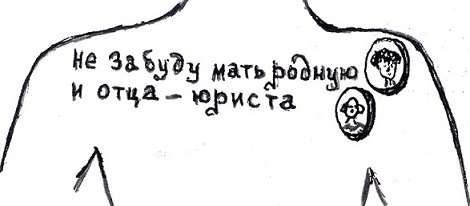 не забуду мать родную
и отца – юриста